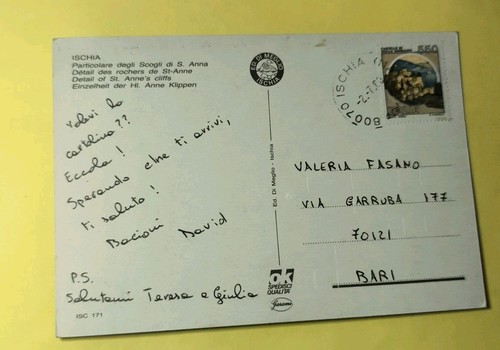 ISCHIA
Particolare degli Scogli di S. Anna
Détail des rochers de St-Anne
Detail of St. Anne's cliffs
Einzelheit der Hl. Anne Klippen
Volevi la
cartolina??
Eccola!
Sperando che ti arrivi,
ti saluto!
Bacioni David
P.S.
Salutami Teresa e Giulia
ISC 171
ED. DI MEGLIO
ISCHIA
Ed. Di Meglio - Ischia
OK
SPEDISCI
QUALITA'
80070 ISCHIA
550
VALERIA FASANO
VIA GARRUBA 177
70121
BARI